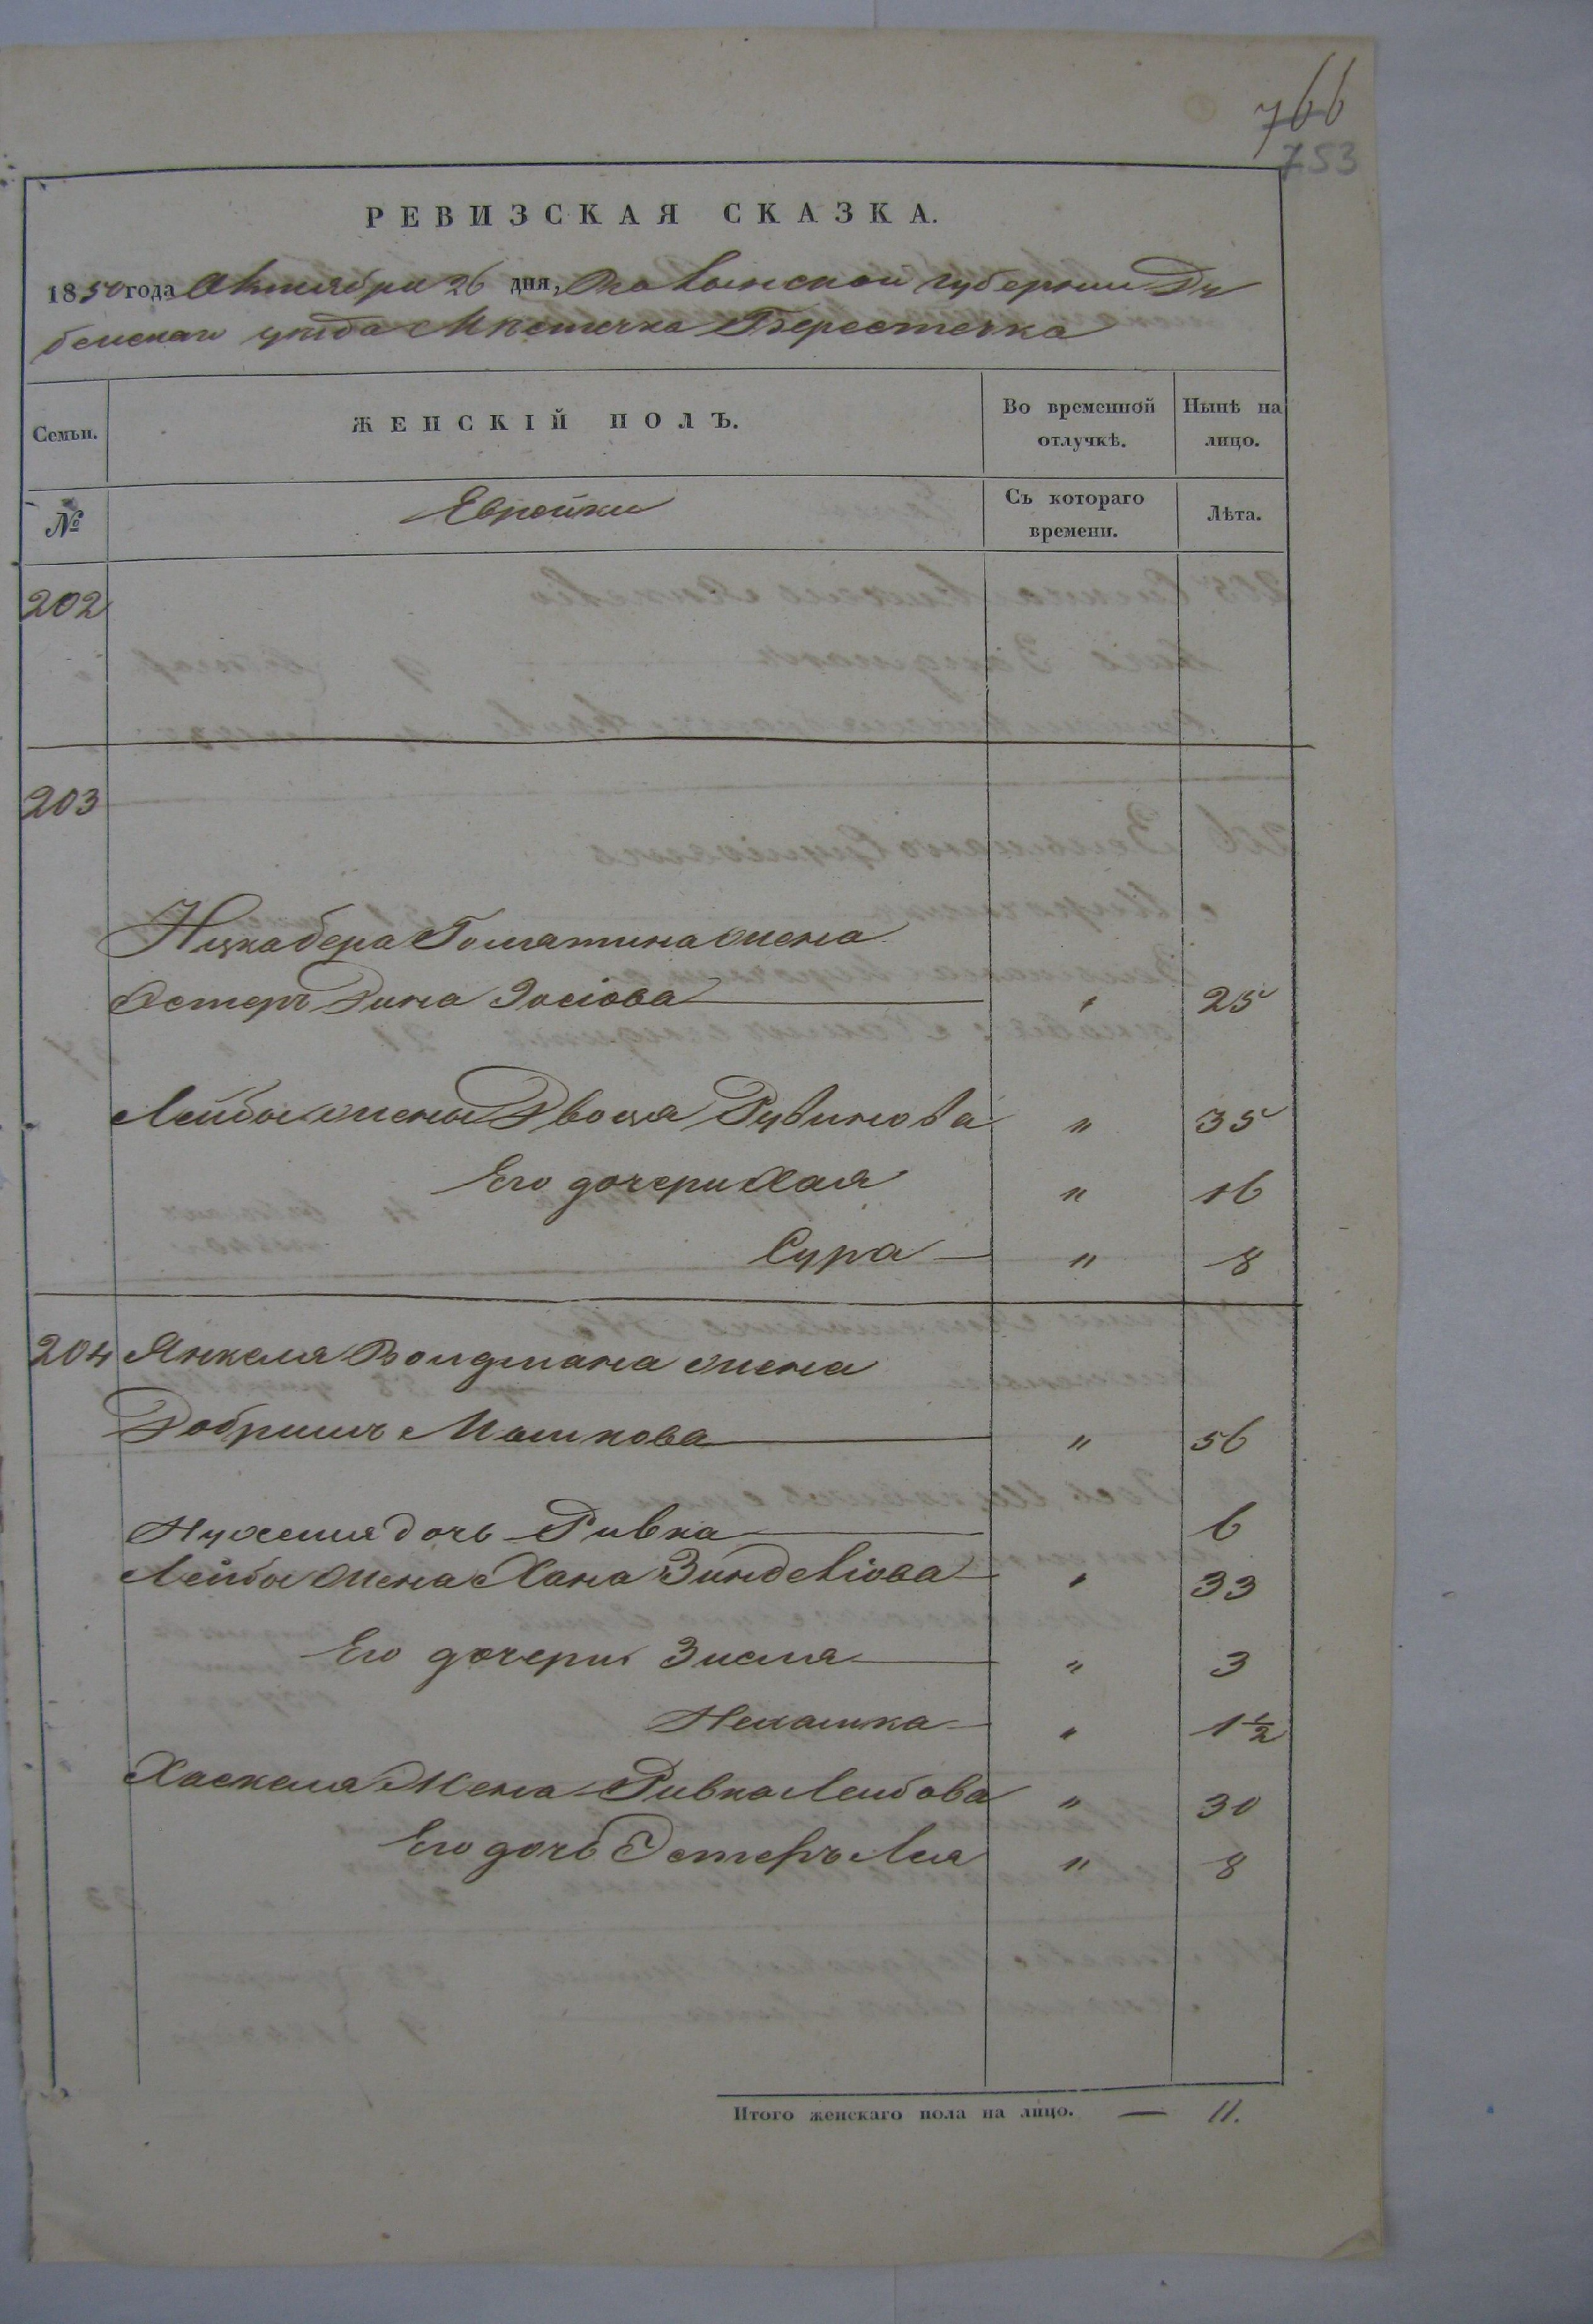 766
753
РЕВИЗСКАЯ СКАЗКА.
1850 года Октября 26 дня, Волынской губернии Ду
бенскаго уѣзда Мѣстечка Берестечка
Семьи.
ЖЕНСКІЙ ПОЛЪ.
Во временной отлучкѣ.
Нынѣ на лицо.
№
Еврейки
Съ котораго времени.
Лѣта.
202
203
Ицка бера Гоматина жена
Эстеръ Дина Іосіова " 25
Лейбы жена Двося Рувинова " 35
Его дочери Хая " 16
Сура " 8
204 Янкеля Войдмана жена
Добришъ Мошкова " 56
Нухема дочь Ривка 6
Лейбы жена Хана Зинделіова " 33
Его дочери Зисля " 3
Нехашка " 1 1/2
Хаскеля Жена Ривка Лейбова " 30
Его дочь Эстеръ Лея " 8
Итого женскаго пола на лицо. — 11.